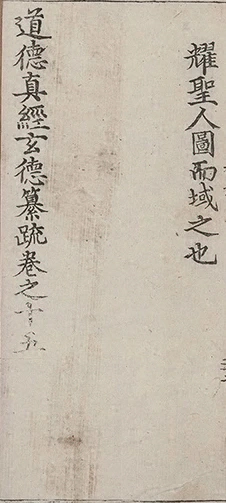 耀聖人圖而域之也
道德真經玄德纂疏卷之